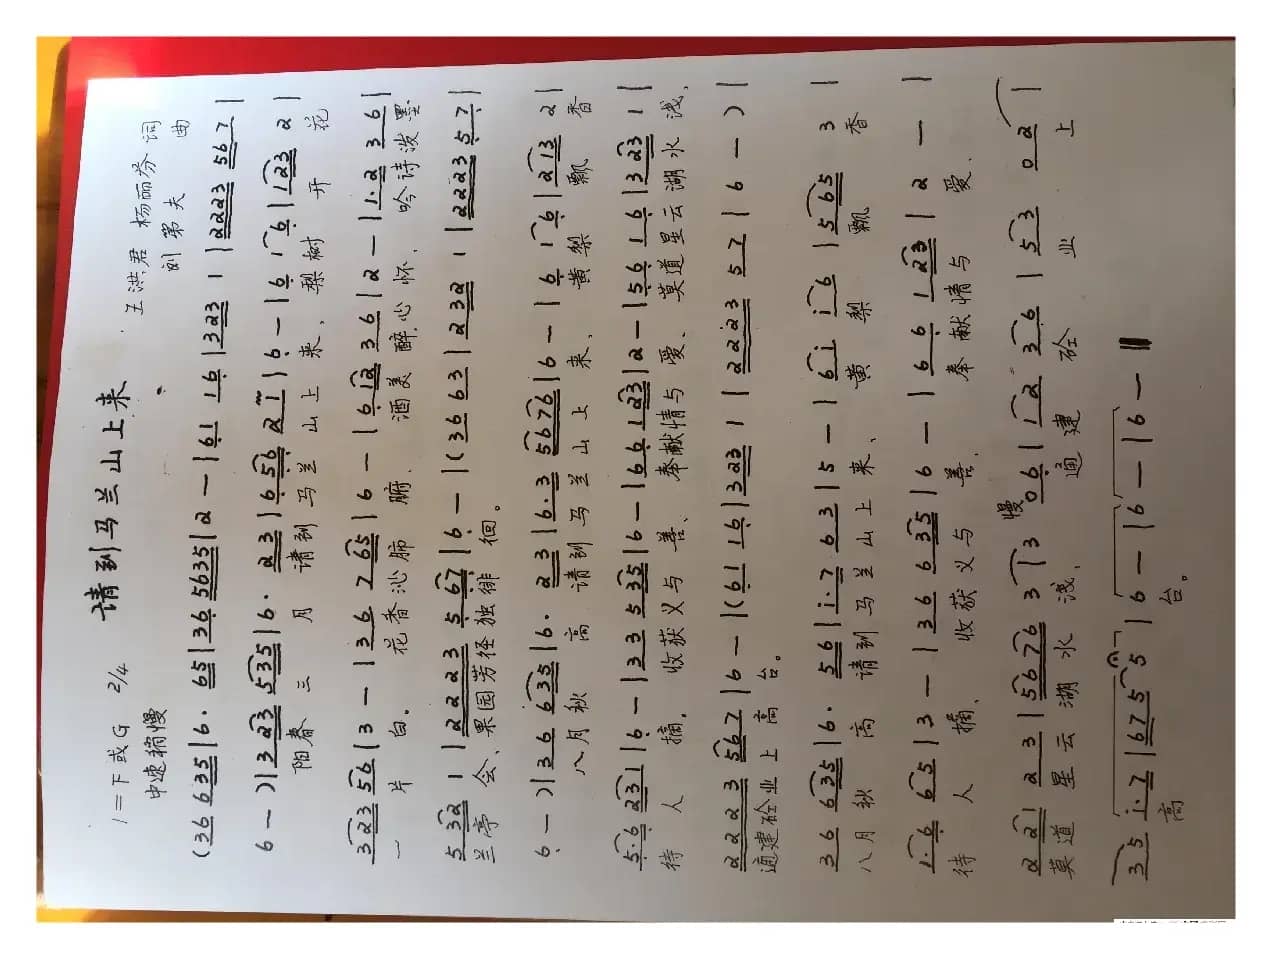 请到马兰山上来
1=F或G 2/4
王洪君 杨丽芬 词
中速稍慢
刘第夫 曲
(36 635|6· 65|36 5635|2 -|61 16|323 1|2223 567|
6 -)|3 23 535|6· 23|6 56 21|6 -|6 1 6|1 23 2|
阳春三月 请到马兰山上来、梨树开花
323 56|3 -|36 765|6 -|6 12 36|2 -|1·2 36|
一片白。花香沁肺腑、酒美醉心怀、吟诗泼墨
5 32 1|2223 567|6 -|(36 63|232 1|2223 57|
兰亭会、果园芳径独徘徊。
6 -)|36 635|6· 23|6·3 5676|6 -|6 1 6|213 2|
八月秋高 请到马兰山上来、黄梨飘香
5·6 231|6 -|33 535|6 -|66 123|2 -|56 16|323 1|
待人摘，收获义与善、奉献情与爱、莫道星云湖水浅，
2223 567|6 -|(61 16|323 1|2223 57|6 -)|
通建砼业上高台。
36 635|6· 56|1·7 63|5 -|6 1 1 6|5 65 3|
八月秋高 请到马兰山上来、黄梨飘香
1·6 65|3 -|36 635|6 -|66 123|2 -|
待人摘、收获义与善、奉献情与爱、
慢
2 21 23|5676 3|3 06|12 36|53 02|
莫道星云湖水浅，通建砼业上
35 1·7|675 5|6 -|6 -|6 -‖
高台。